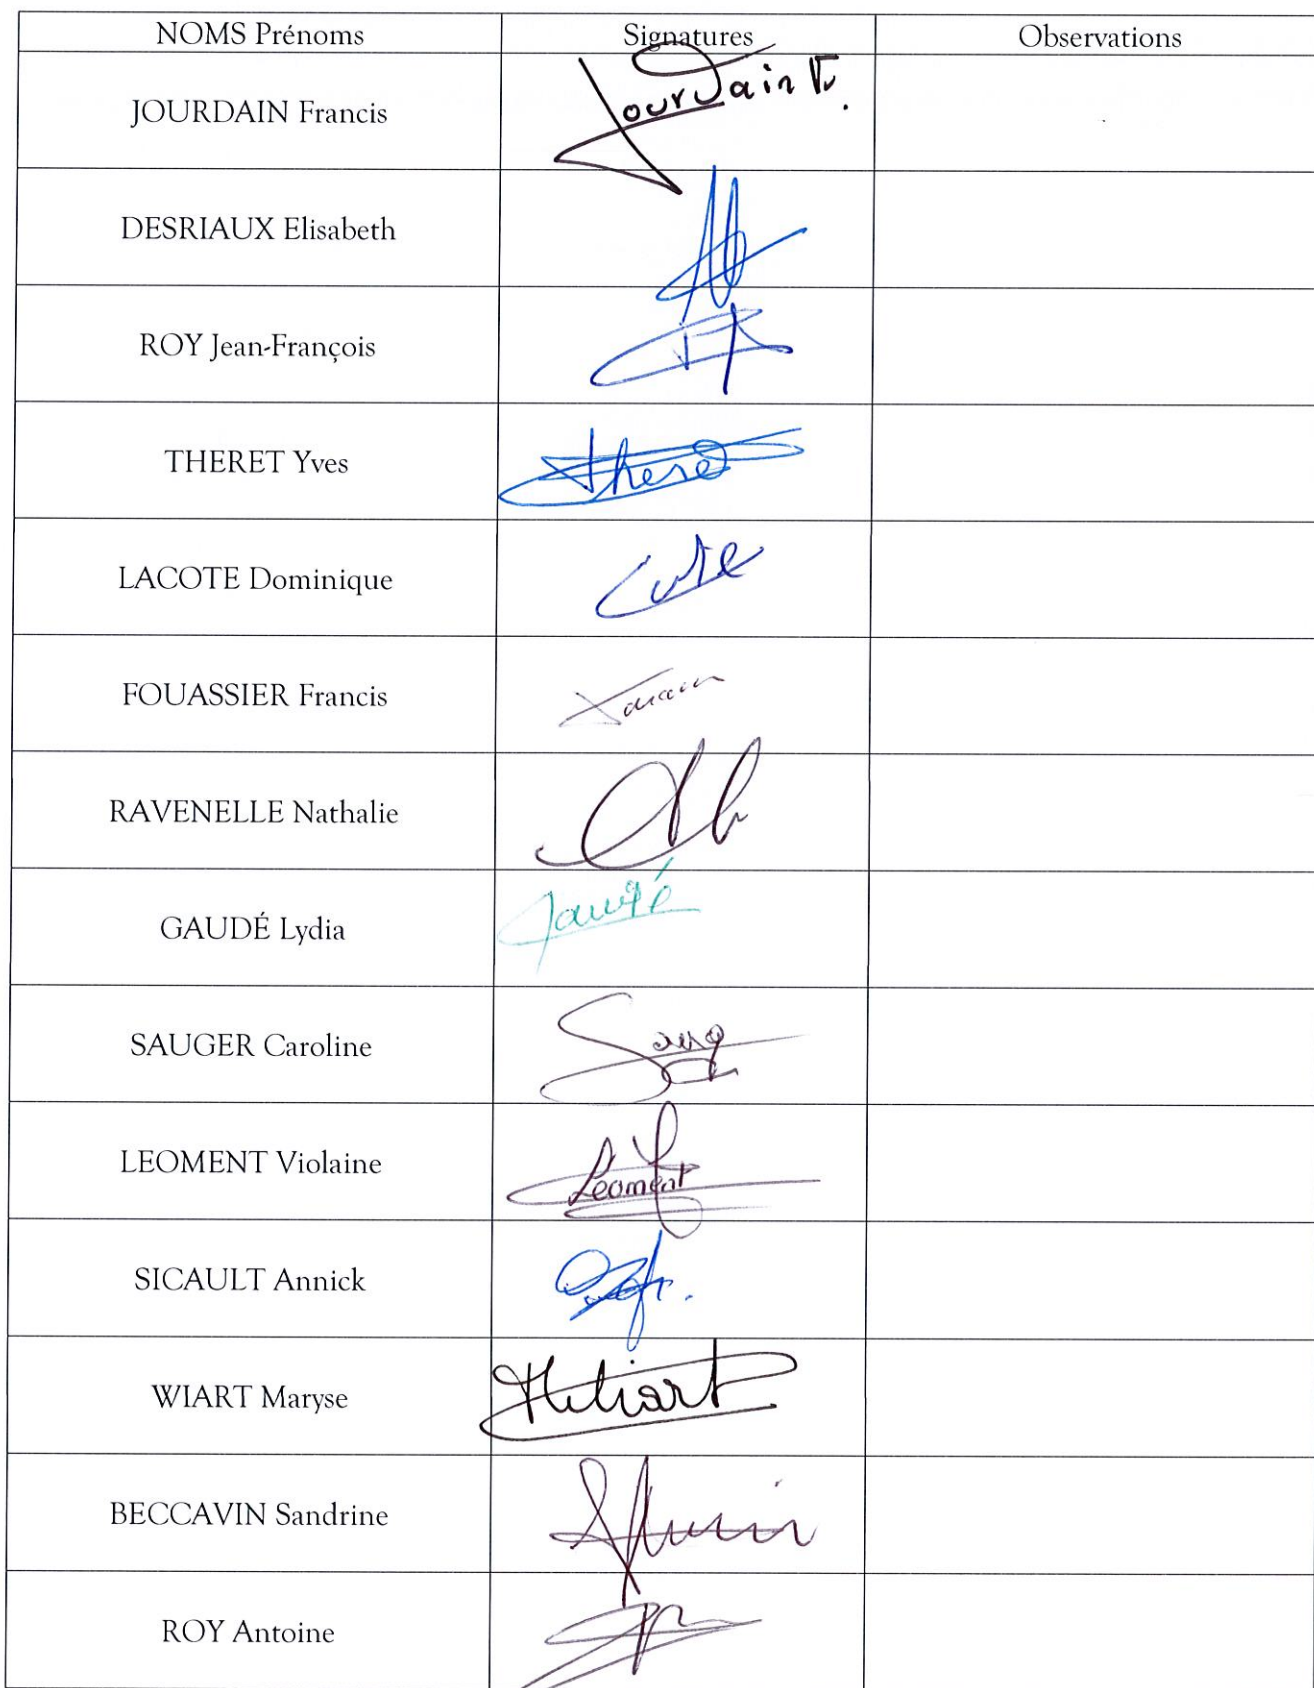 NOMS Prénoms Signatures Observations
JOURDAIN Francis Jourdain Fr.
DESRIAUX Elisabeth
ROY Jean-François
THERET Yves Theret
LACOTE Dominique
FOUASSIER Francis
RAVENELLE Nathalie
GAUDÉ Lydia Gaudé
SAUGER Caroline
LEOMENT Violaine Leoment
SICAULT Annick
WIART Maryse
BECCAVIN Sandrine
ROY Antoine